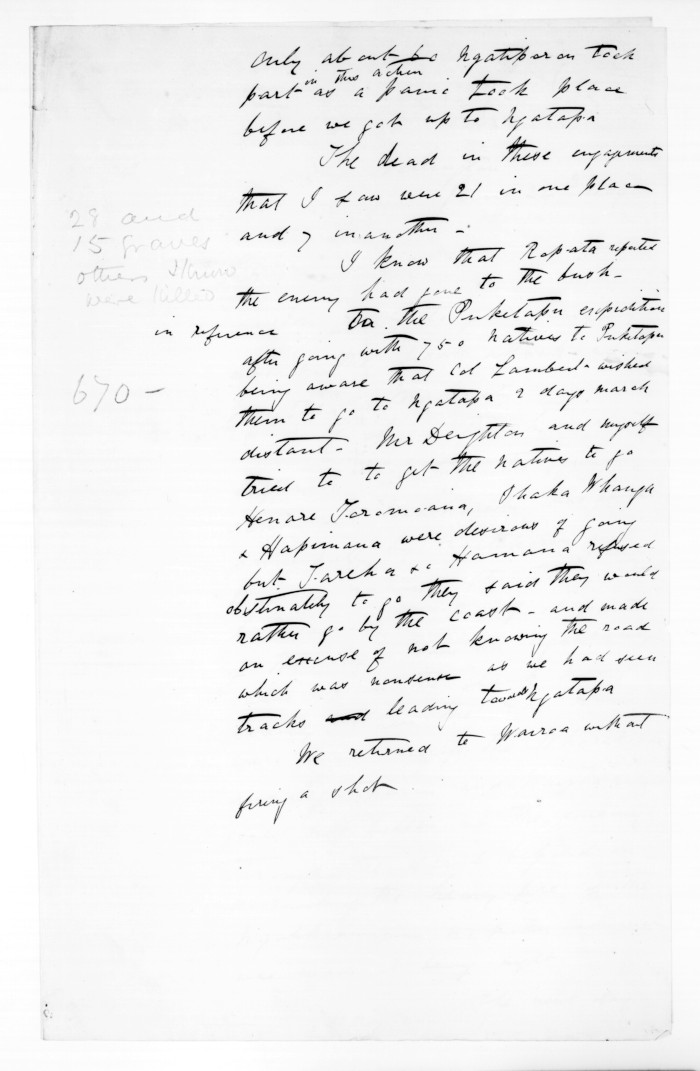 only about Ngatiporou took
in this action
part as a panic took place
before we got up to Ngatapa
The dead in these engagements
that I saw were 21 in one place
and 7 in another -
29 and
15 graves
others I know
were killed
I know that Ropata reported
the enemy had gone to the bush -
in reference To the Puketapu expedition
after going with 750 Natives to Puketapu
being aware that Col Lambert wished
670 -
them to go to Ngatapa 2 days march
distant - Mr Deighton and myself
tried to to get the Natives to go
Henare Toromoana, Ihaka Whanga
& Hapimana were desirous of going
but Tareha & Hamana refused
obstinately to go they said they would
rather go by the coast - and made
an excuse of not knowing the road
which was nonsense as we had seen
tracks and leading towards Ngatapa
We returned to Wairoa without
firing a shot